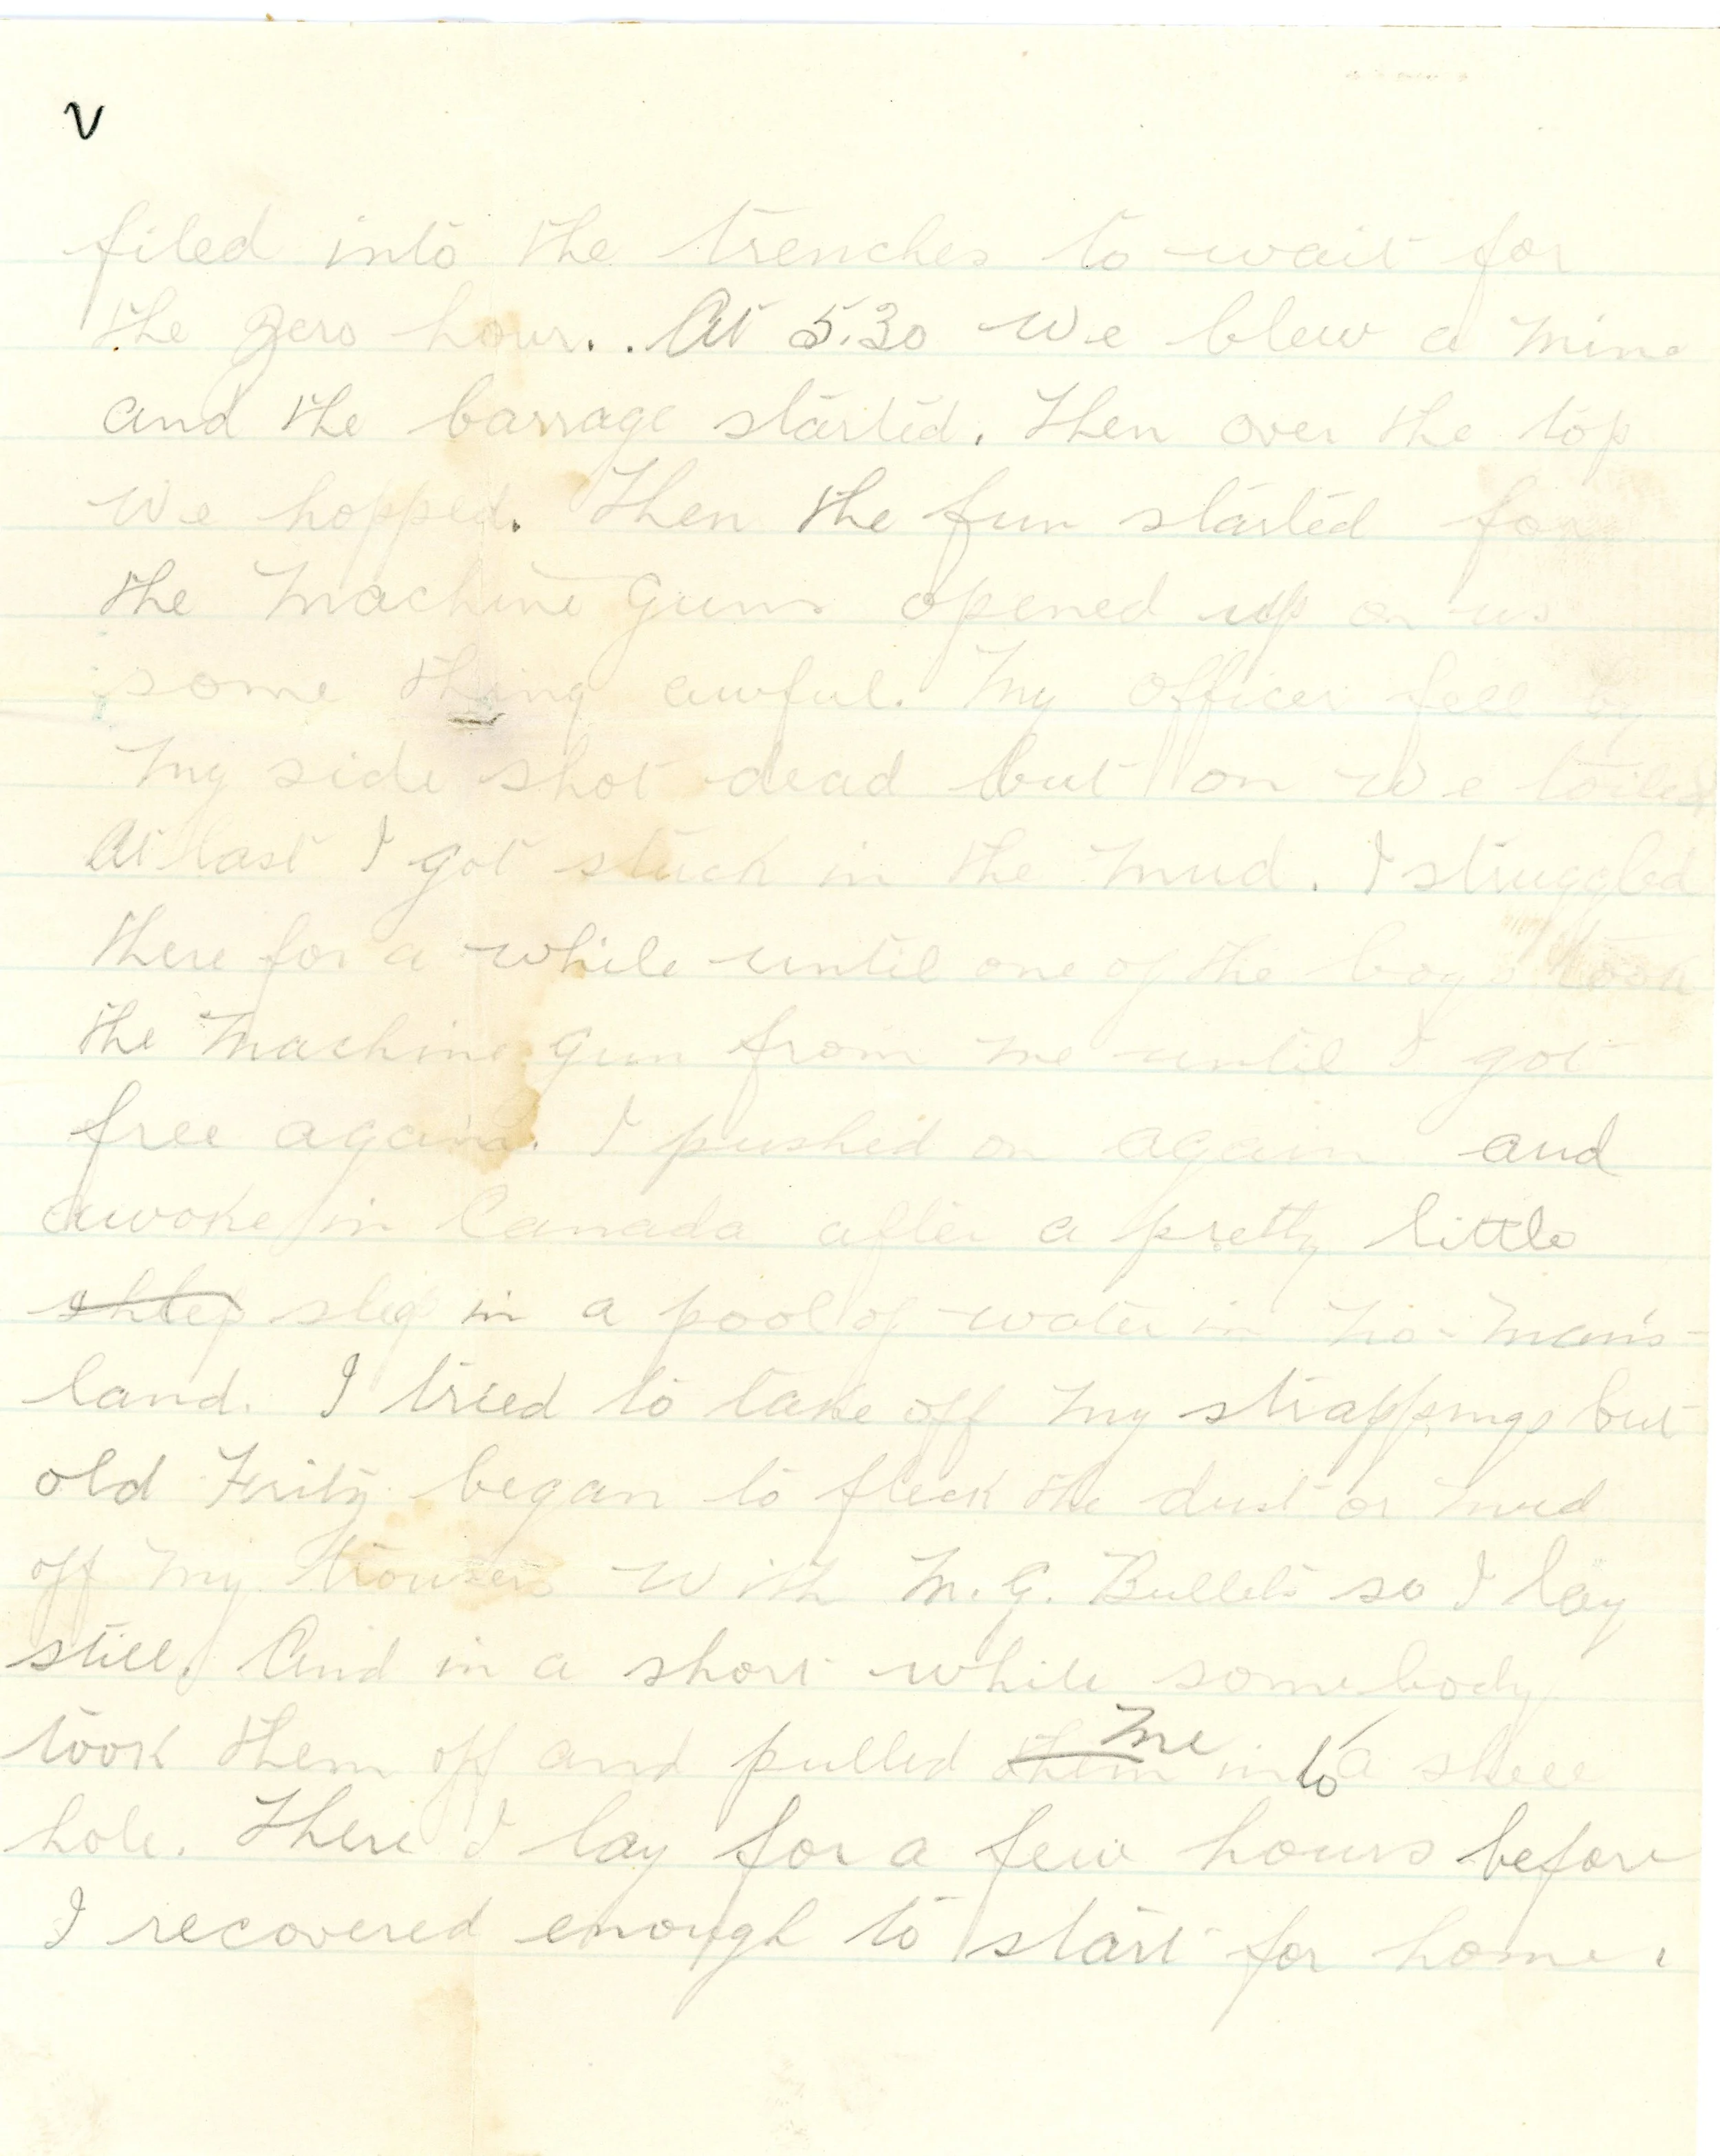 V
filed into the trenches to wait for
the zero hour. . At 5.30 we blew a mine
and the barrage started. Then over the top
we hopped. Then the fun started for
the machine guns opened up on us
some thing awful. My officer fell by
my side shot dead but on we toiled
At last I got stuck in the mud. I struggled
there for a while until one of the boys took
the machine gun from me until I got
free again. I pushed on again and
awoke in Canada after a pretty little
shlep slep in a pool of water in no-man's-
land. I tried to take off my strappings but
old Fritz began to fleck the dust or mud
off my trousers with M.G. Bullets so I lay
still. And in a short while somebody
took them off and pulled them me into a shell
hole. There I lay for a few hours before
I recovered enough to start for home.